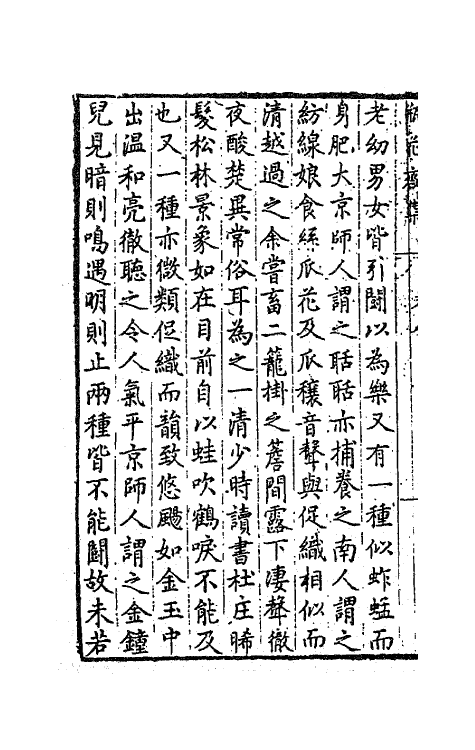 老幼男女皆引鬭以為樂又有一種似蚱蜢而
身肥大京師人謂之聒聒亦捕養之南人謂之
紡線娘食絲瓜花及瓜穰音聲與促織相似而
清越過之余嘗畜二籠掛之簷間露下淒聲徹
夜酸楚異常俗耳為之一清少時讀書杜庄晞
髮松林景象如在目前自以蛙吹鶴唳不能及
也又一種亦微類促織而韻致悠颺如金玉中
出温和亮徹聽之令人氣平京師人謂之金鐘
兒見暗則鳴遇明則止兩種皆不能鬭故未若